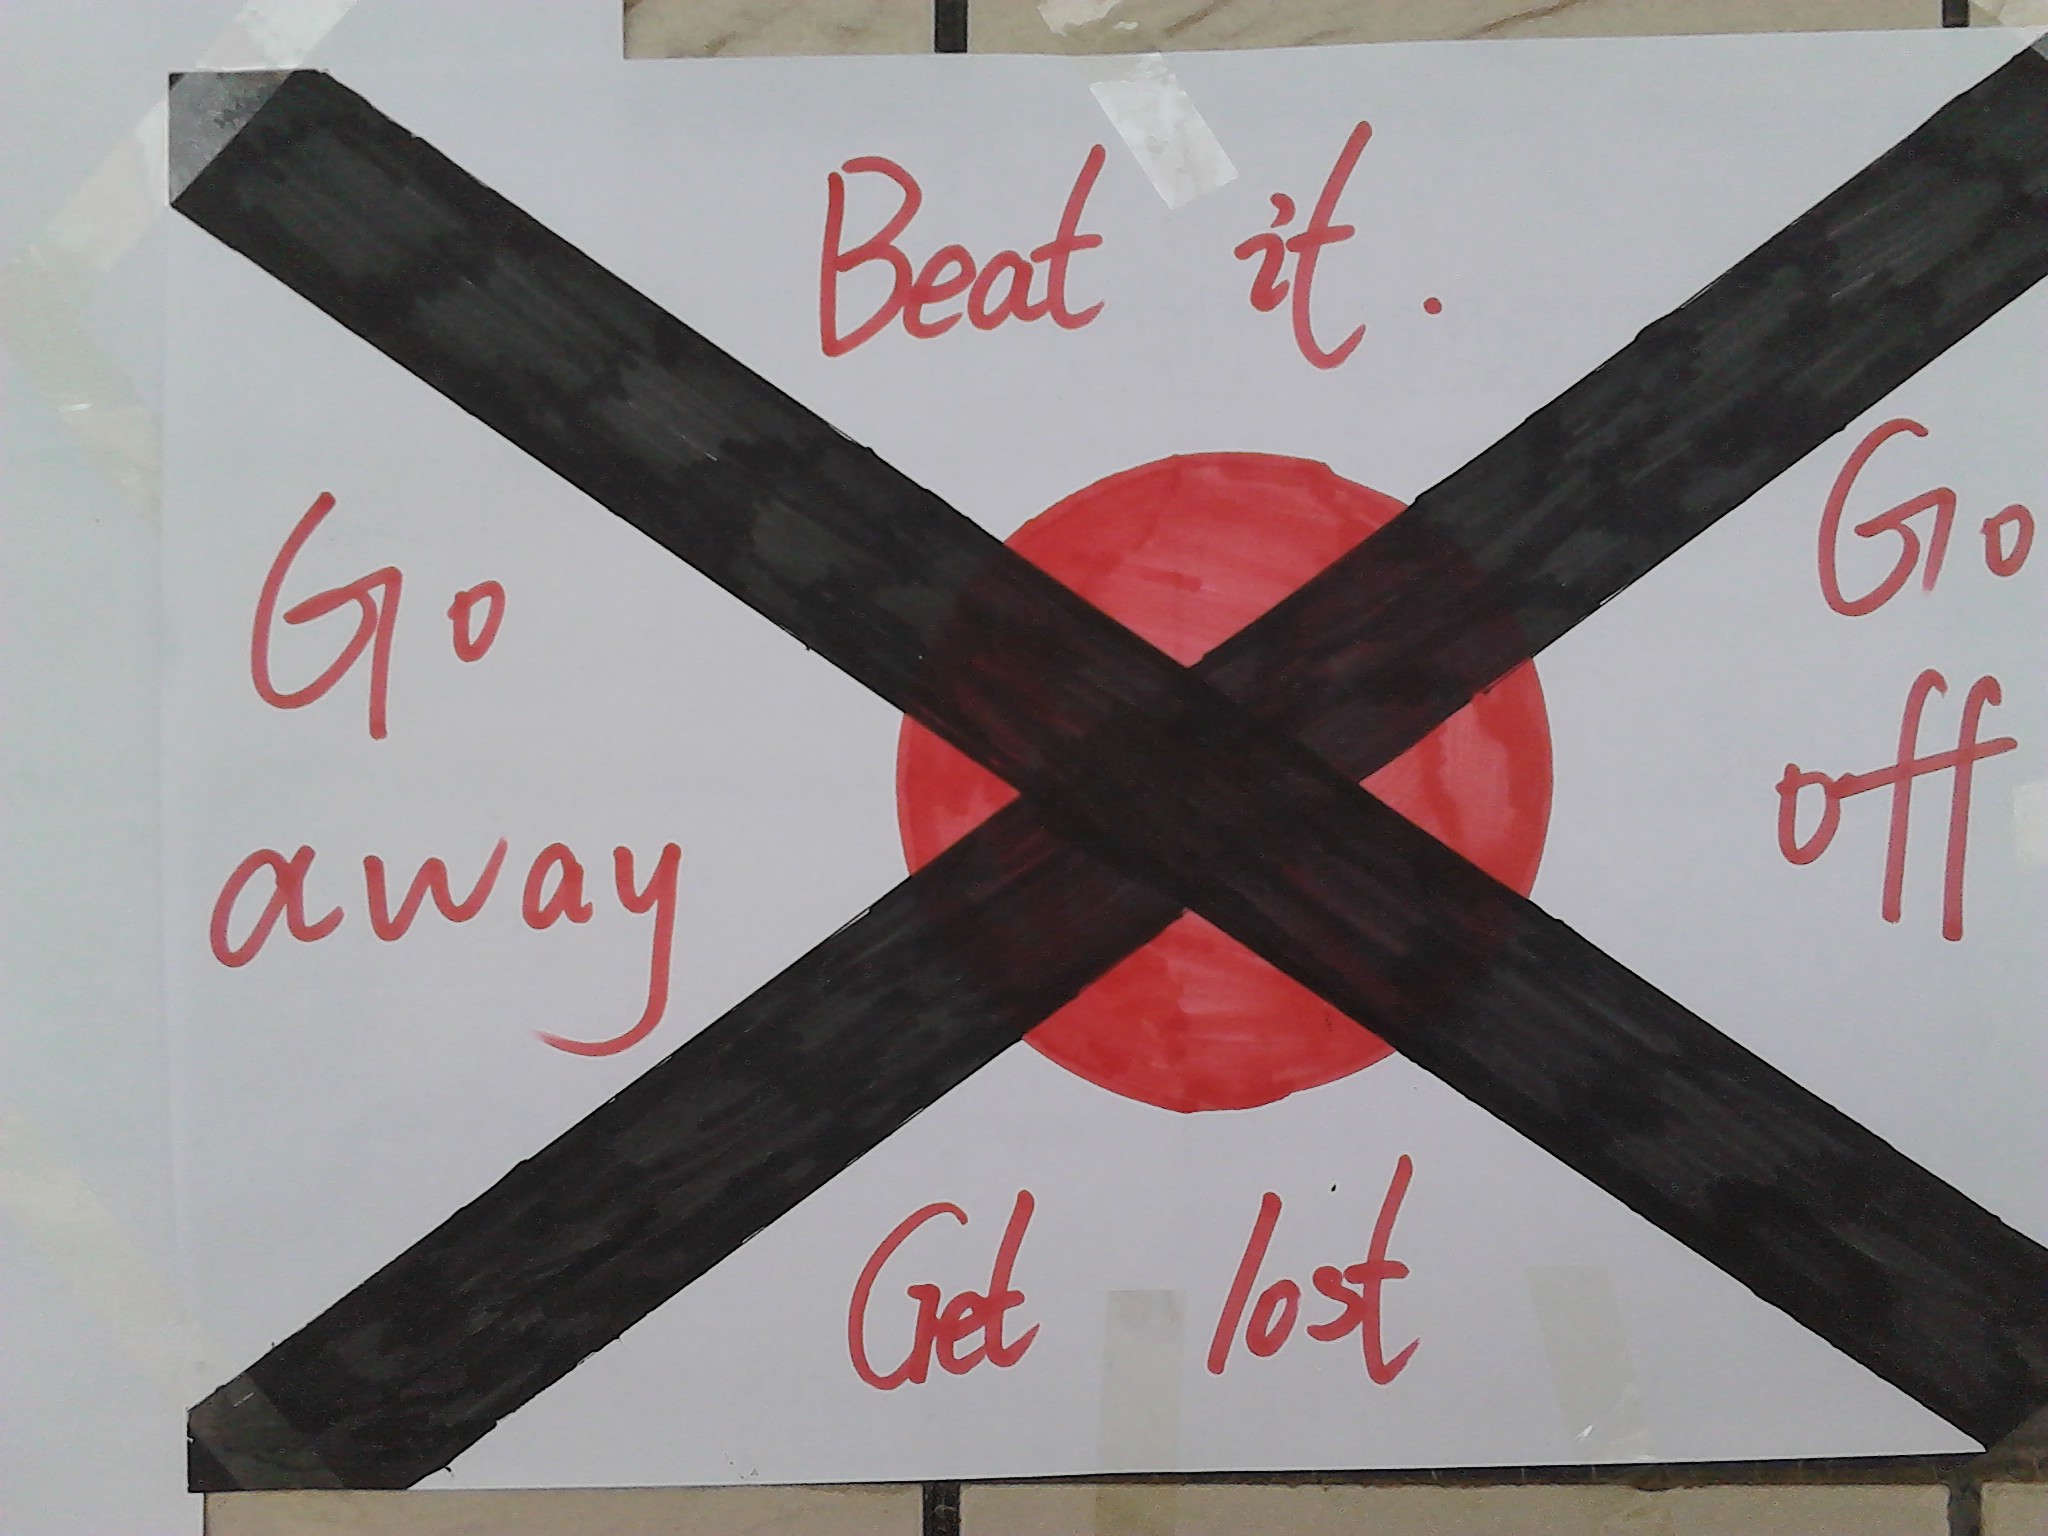 Beat it.
Go
away
Go
off
Get lost